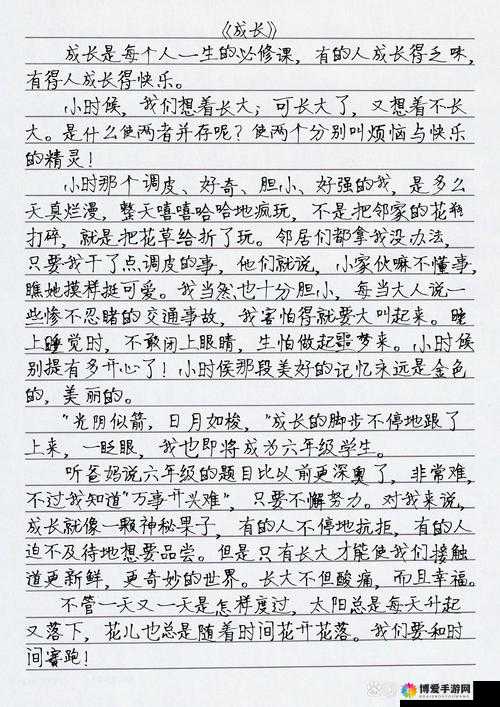 《成长》
成长是每个人一生的必修课，有的人成长得乏味，
有得人成长得快乐。
小时候，我们想着长大；可长大了，又想着不长
大。是什么使两者并存呢？使两个分别叫烦恼与快乐
的精灵！
小时那个调皮、好奇、胆小、好强的我，是多么
天真烂漫，整天嘻嘻哈哈地疯玩，不是把邻家的花瓶
打碎，就是把花草给折了玩。邻居们都拿我没办法，
只要我干了点调皮的事，他们就说，小家伙嘛不懂事，
瞧她摸样挺可爱。我当然也十分胆小，每当大人说一
些惨不忍睹的交通事故，我害怕得就要大叫起来。晚
上睡觉时，不敢闭上眼睛，生怕做起噩梦来。小时候
别提有多开心了！小时侯那段美好的记忆永远是金色
的，美丽的。
“光阴似箭，日月如梭，”成长的脚步不停地跟了
上来，一眨眼，我也即将成为六年级学生。
听爸妈说六年级的题目比以前更深奥了，非常难，
不过我知道“万事开兴难”，只要不懈努力。对我来说，
成长就像一颗神秘果子，有的人不停地抗拒，有的人
迫不及待地想要品尝。但是只有长大才能使我们接触
道更新鲜，更奇妙的世界。长大不但酸痛，而且幸福。
不管一天又一天是怎样度过，太阳总是每天升起
又落下，花儿也总是随着时间花开花落。我们要和时
间赛跑！
博爱手游网